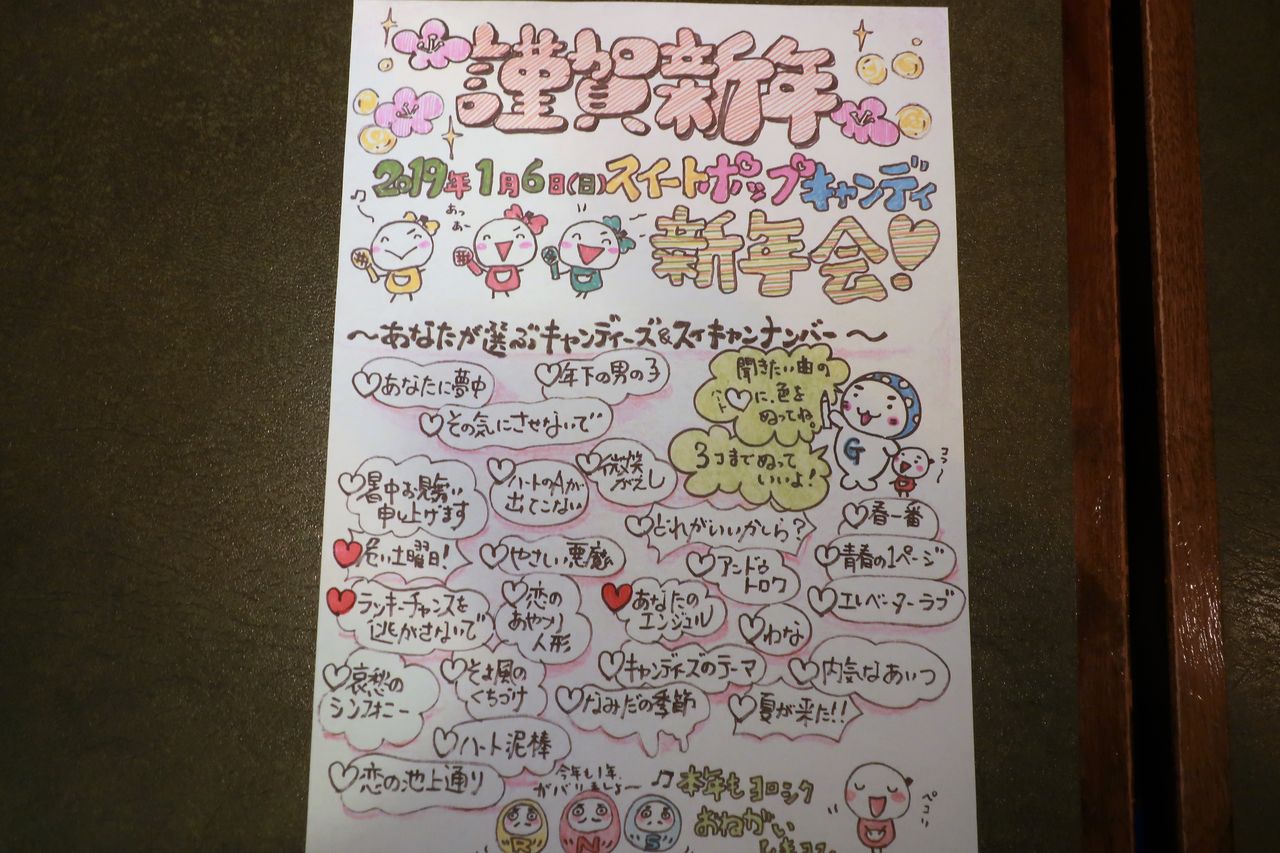 謹賀新年
2019年1月6日(日)スイートポップキャンディ
新年会!
あっ
あー
～あなたが選ぶキャンディーズ&スイキャンナンバー～
あなたに夢中
年下の男の子
その気にさせないで
聞きたい曲の
ハート
に、色を
ぬってね。
3コまでぬって
いいよ!
G
コソ～
暑中お見舞い
申し上げます
ハートのAが
出てこない
微笑
がえし
どれがいいかしら?
春一番
危い土曜日!
やさしい悪魔
アンドゥ
トロワ
青春の1ページ
ラッキーチャンスを
逃がさないで
恋の
あやつり
人形
あなたの
エンジェル
わな
エレベーターラブ
哀愁の
シンフォニー
そよ風の
くちづけ
キャンディーズのテーマ
内気なあいつ
なみだの季節
夏が来た!!
ハート泥棒
恋の池上通り
今年も1年、
ガバリましょ～
R
N
S
本年もヨロシク
おねがい
ペコッ